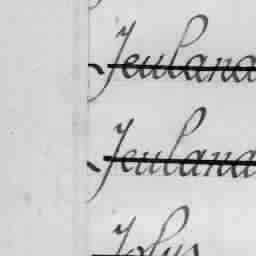 Jeulana
Jeulana
Jolys